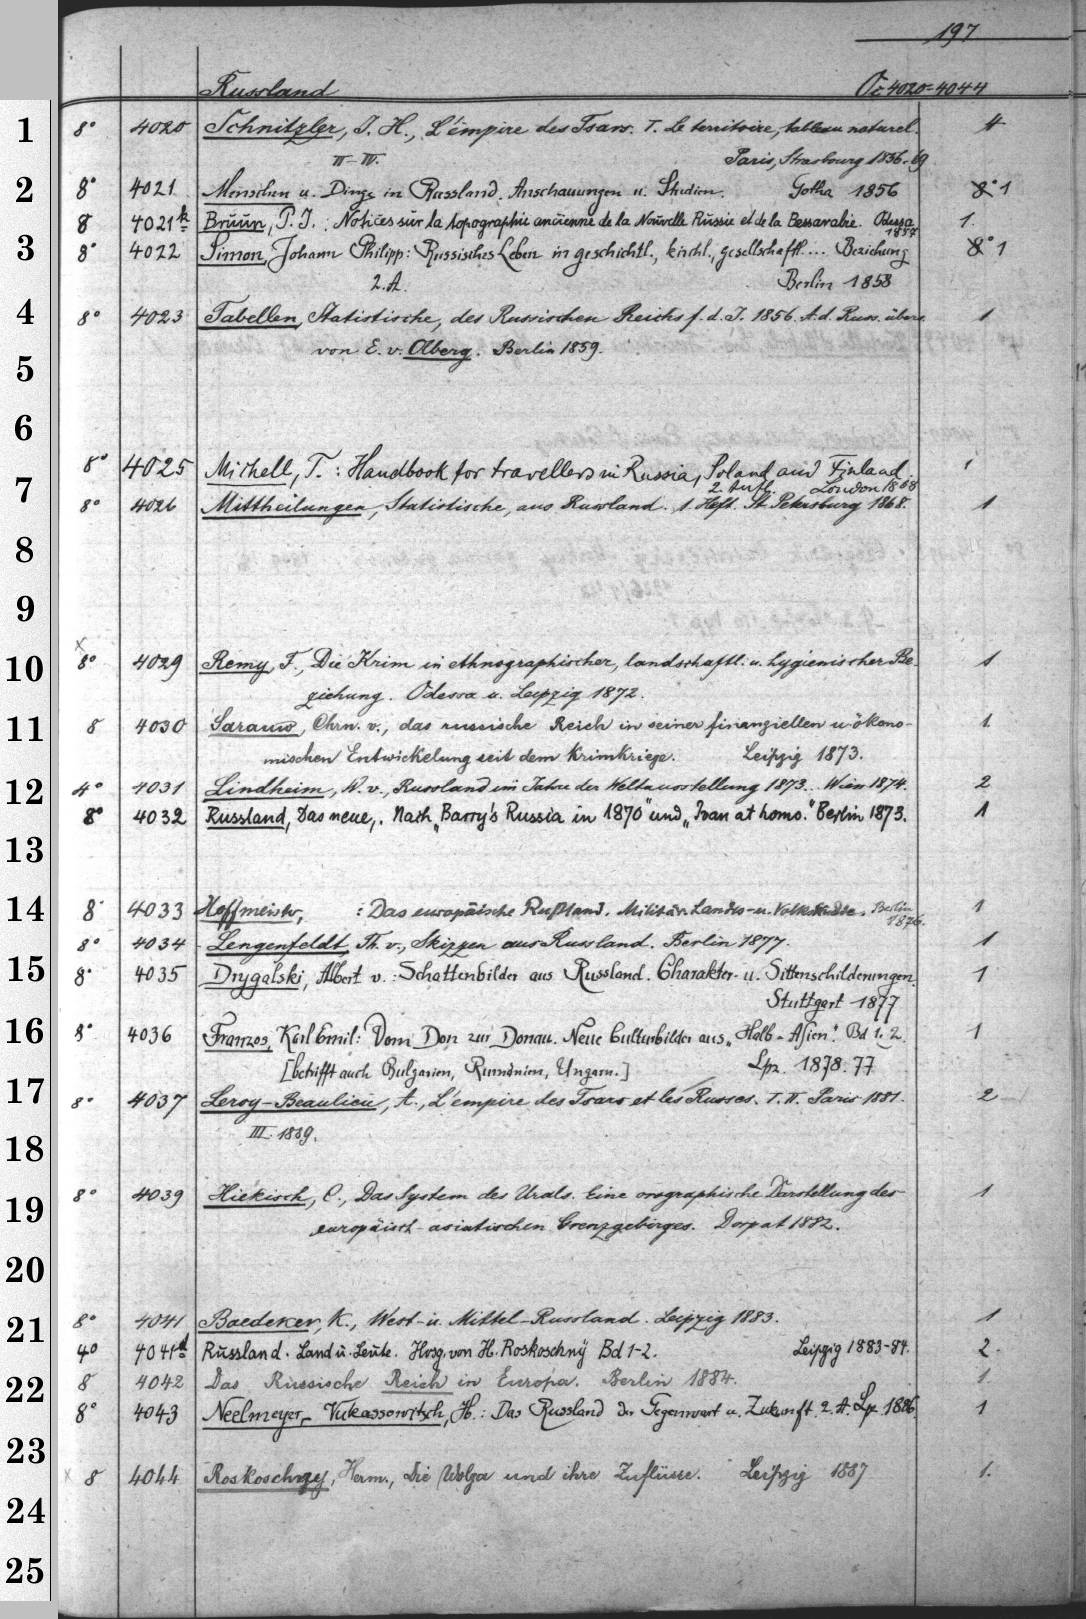 197
Russland Oc 4020-4044
1 8° 4020 Schnitzler, J. H., L'empire des Tsars. T. Le territoire, tableau naturel. 4
II-IV. Paris, Strasbourg 1856-69
2 8° 4021 Menschen u. Dinge in Russland. Anschauungen u. Studien. Gotha 1856 8° 1
8 4021k Bruun, P. J.: Notices sur la topographie ancienne de la Nouvelle Russie et de la Bessarabie. Odessa 1857 1.
3 8° 4022 Simon, Johann Philipp: Russisches Leben in geschichtl., kirchl., gesellschaftl.... Beziehung 8° 1
2. A. Berlin 1858
4 8° 4023 Tabellen, Statistische, des Russischen Reichs f. d. J. 1856. A. d. Russ. übers. 1
von E. v. Olberg. Berlin 1859.
5
6
8° 4025 Michell, T.: Handbook for travellers in Russia, Poland and Finland. 1
7 2. Aufl. London 1868
8° 4026 Mittheilungen, Statistische, aus Russland. 1. Heft. St. Petersburg 1868. 1
8
9
x
10 8° 4029 Remy, F., Die Krim in ethnographischer, landschaftl. u. hygienischer Be- 1
ziehung. Odessa u. Leipzig 1872.
11 8 4030 Sarauw, Chrn. v., das russische Reich in seiner finanziellen u. ökono- 1
mischen Entwickelung seit dem Krimkriege. Leipzig 1873.
12 4° 4031 Lindheim, W. v., Russland im Jahre der Weltausstellung 1873. Wien 1874. 2
8° 4032 Russland, Das neue,. Nach „Barry's Russia in 1870" und „Ivan at home." Berlin 1873. 1
13
14 8 4033 Hoffmeister, : Das europäische Rußland. Militär. Landes- u. Volksstudie. Berlin 1876. 1
8° 4034 Lengenfeldt, Th. v., Skizzen aus Russland. Berlin 1877. 1
15 8° 4035 Drygalski, Albert v.: Schattenbilder aus Russland. Charakter- u. Sittenschilderungen. 1
Stuttgart 1877
16 8° 4036 Franzos, Karl Emil: Vom Don zur Donau. Neue Culturbilder aus „Halb-Asien". Bd 1. 2. 1
[betrifft auch Bulgarien, Rumänien, Ungarn.] Lpz. 1878. 77
17 8° 4037 Leroy-Beaulieu, A., L'empire des Tsars et les Russes. T. II. Paris 1881. 2
III. 1889.
18
19 8° 4039 Hiekisch, C., Das System des Urals. Eine orographische Darstellung des 1
europäisch-asiatischen Grenzgebirges. Dorpat 1882.
20
21 8° 4041 Baedeker, K., West- u. Mittel-Russland. Leipzig 1883. 1
4° 4041d Russland. Land u. Leute. Hrsg. von H. Roskoschny Bd 1-2. Leipzig 1883-84. 2.
22 8 4042 Das Russische Reich in Europa. Berlin 1884. 1.
8° 4043 Neelmeyer-Vukassowitsch, H.: Das Russland der Gegenwart u. Zukunft. 2. A. Lpz 1886 1
23
x 8 4044 Roskoschny, Herm., Die Wolga und ihre Zuflüsse. Leipzig 1887 1.
24
25